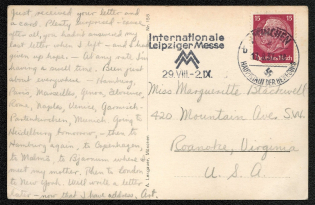 just received your letter and
card. Plenty surprised since
after all, you hadn't answered my
last letter when I left - and I had
given up hope. - At any rate I'm
having a swell time. Been just
about everywhere - Hamburg,
Paris, Marseilles, Genoa, Florence,
Rome, Naples, Venice, Garmisch-
Partenkirchen, Munich. Going to
Heidelberg tomorrow, then to
Hamburg again, to Copenhagen,
to Malmö, to where
meet my mother. Then to London
to New York. Will write a letter
later - now that I have address. Art.
A. Lengauer, München
Internationale
Leipziger Messe
29.VIII.-2.IX.
MÜNCHEN
HAUPTSTADT DER BEWEGUNG
15 15
Deutsches Reich
Miss Marguerite Blackwell
420 Mountain Ave. S.W.
Roanoke, Virginia
U. S. A.